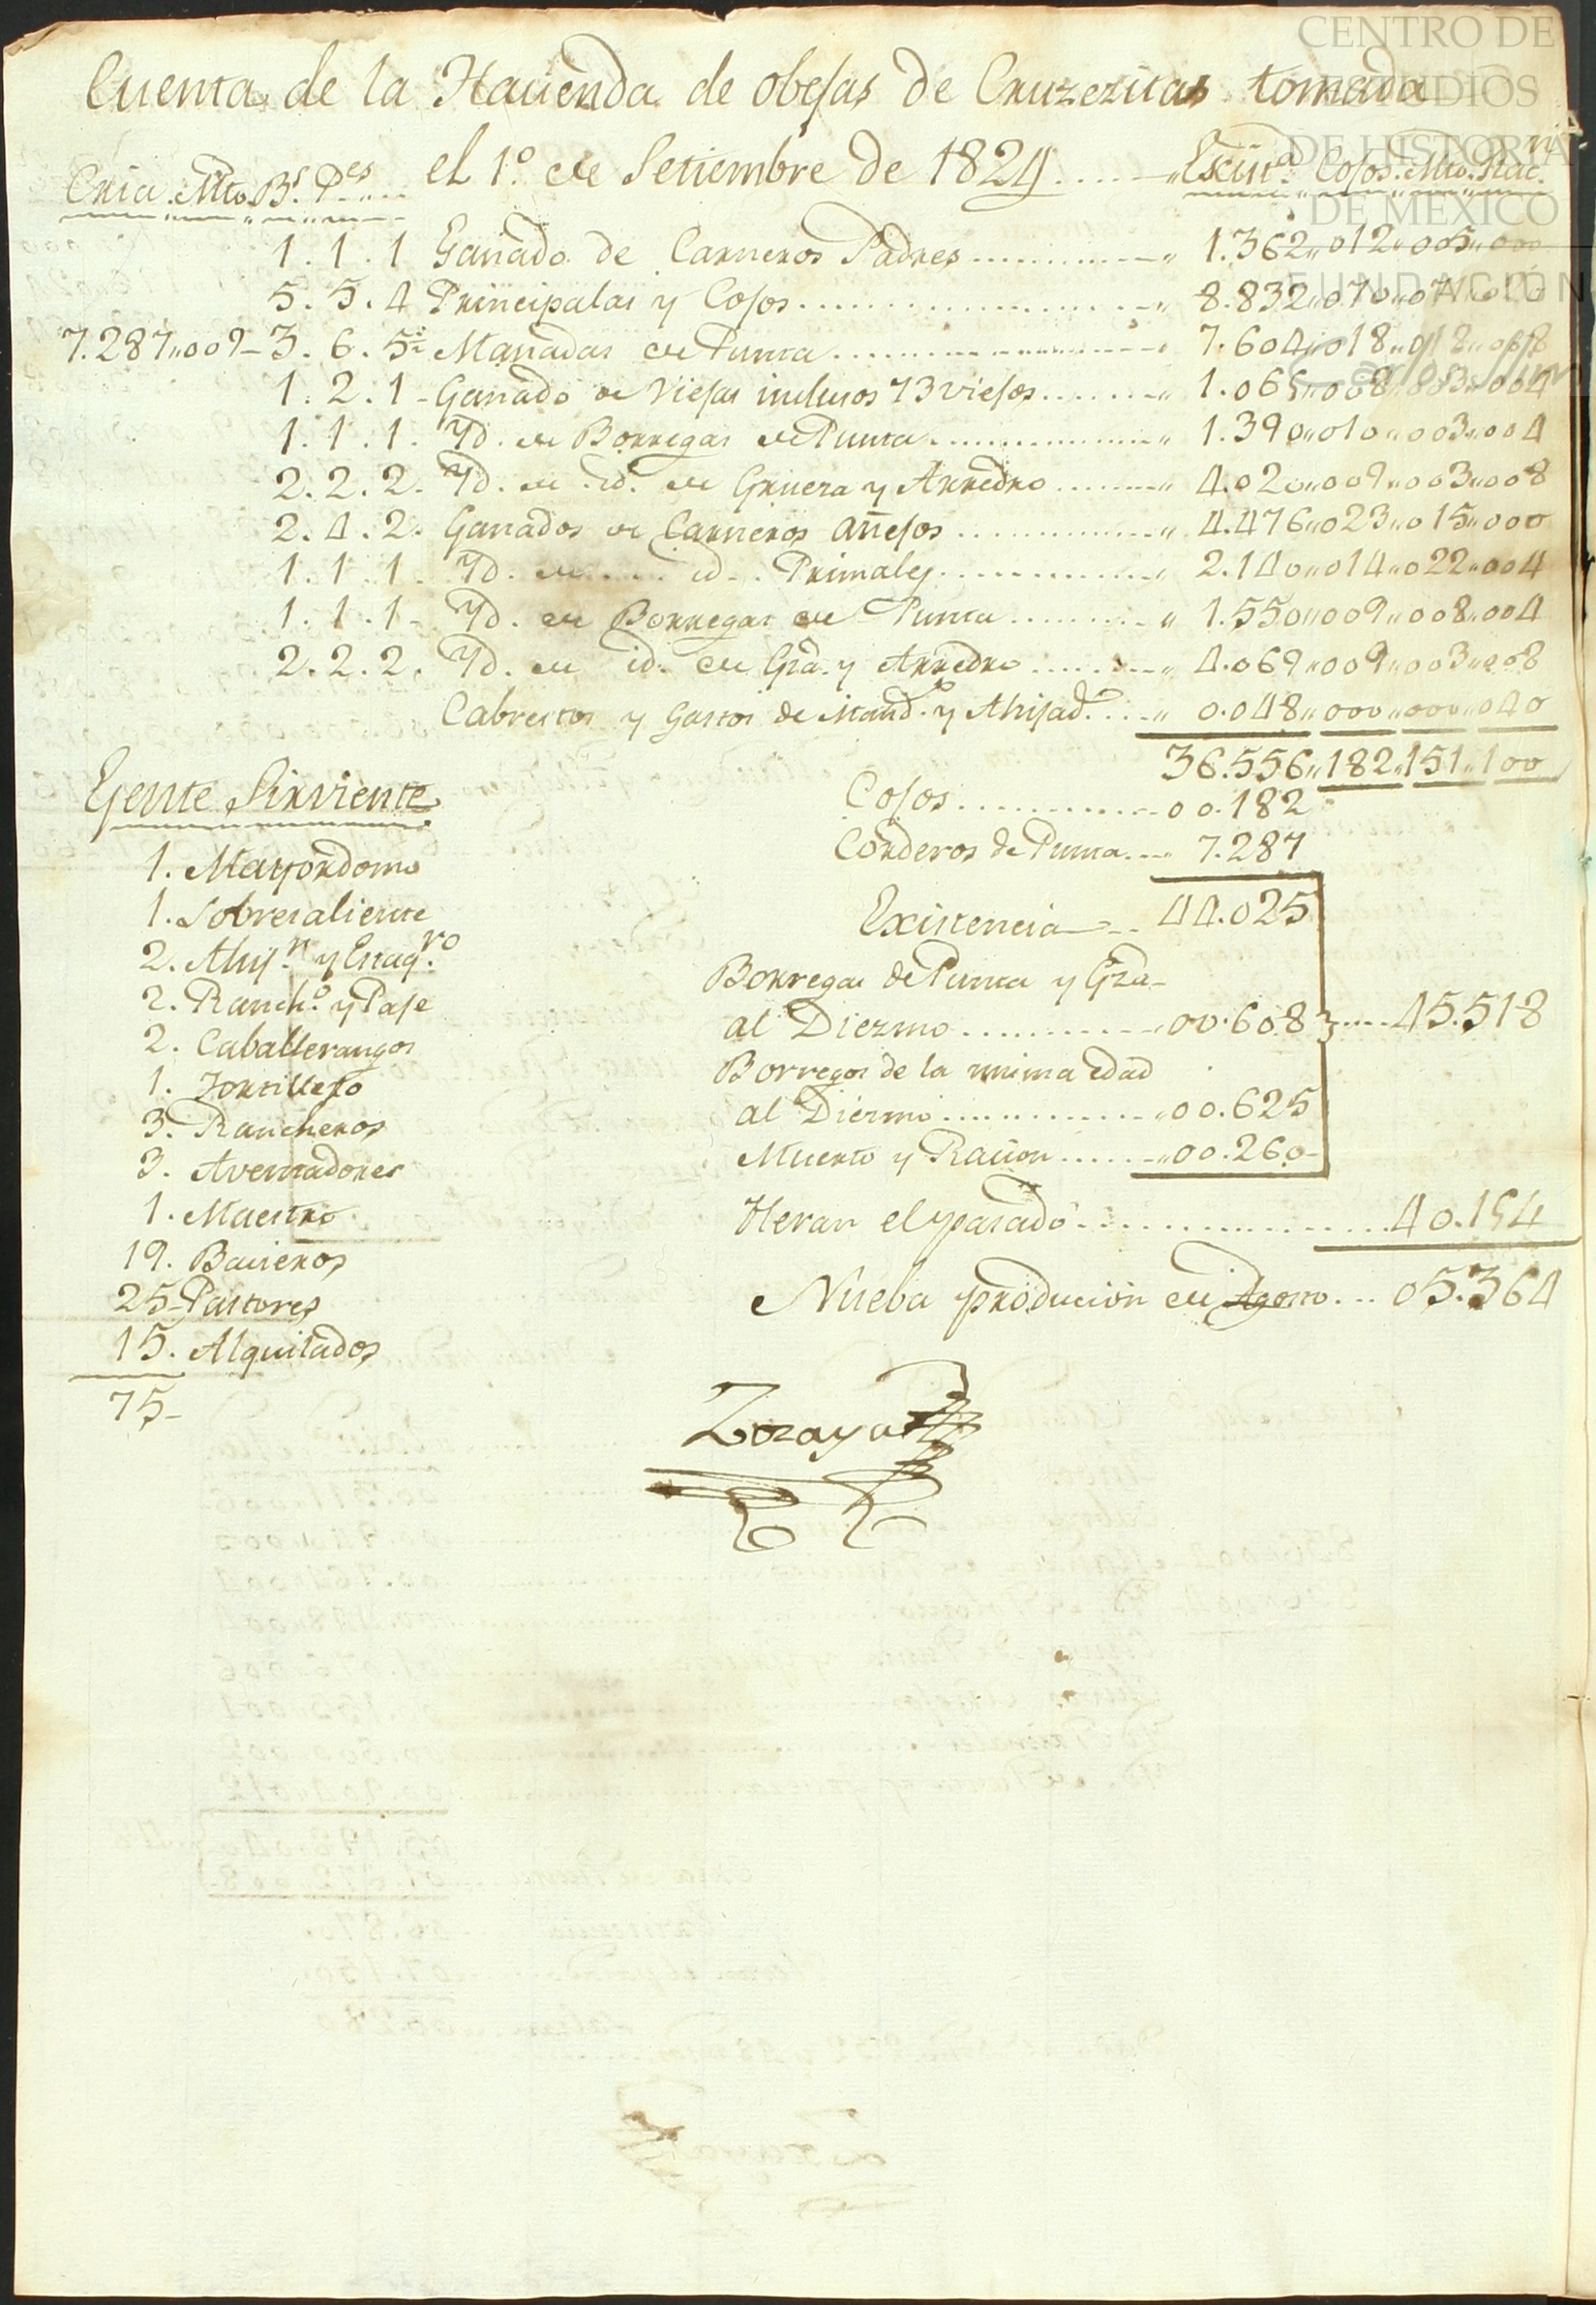 CENTRO DE
ESTUDIOS
DE HISTORIA
DE MEXICO
FUNDACIÓN
Carlos Slim
Cuenta de la Hacienda de obejas de Cruzezitas tomada
el 1.º de Setiembre de 1824
Cria. Mto. Bs. Pes
Existª. Cojos. Mto. Racn.
1. 1. 1 Ganado de Carneros Padres 1.362,,012,,005,,000
5. 5. 4 Principalas y Cojos 8.832,,070
7.287,,009 3. 6. 5 Manadas de Punta 7.604,,018
1. 2. 1 Ganado de Viejas inclusos 73 viejos 1.065,,008,,003,,004
1. 1. 1. Yd. de Borregas de Punta 1.390,,010,,003,,004
2. 2. 2. Yd. de id. de Gruera y Arredro 4.020,,009,,003,,008
2. 4. 2. Ganados de Carneros añejos 4.476,,023,,015,,000
1. 1. 1. Yd. de id. Primales 2.140,,014,,022,,004
1. 1. 1. Yd. de Borregas de Punta 1.550,,009,,008,,004
2. 2. 2. Yd. de id. de Gra. y Arredro 4.069,,009,,003,,008
Cabrestos y Gastos de Mand.º y Ahijad.º 0.048,,000,,000,,040
36.556,,182,,151,,100
Cojos 00.182
Corderos de Punta 7.287
Existencia 44.025
Borregas de Punta y Gra
al Diezmo 00.608 45.518
Borregos de la misma edad
al Diezmo 00.625
Muerto y Racion 00.260
Heran el pasado 40.154
Nueba produción en Agosto 05.364
Gente Sirviente
1. Mayordomo
1. Sobresaliente
2. Ahijr. y Estaq.ro
2. Ranch.º y Paje
2. Caballerangos
1. Tortillero
3. Rancheros
3. Aventadores
1. Maestro
19. Bacieros
25 Pastores
15. Alquilados
75
Lozaya